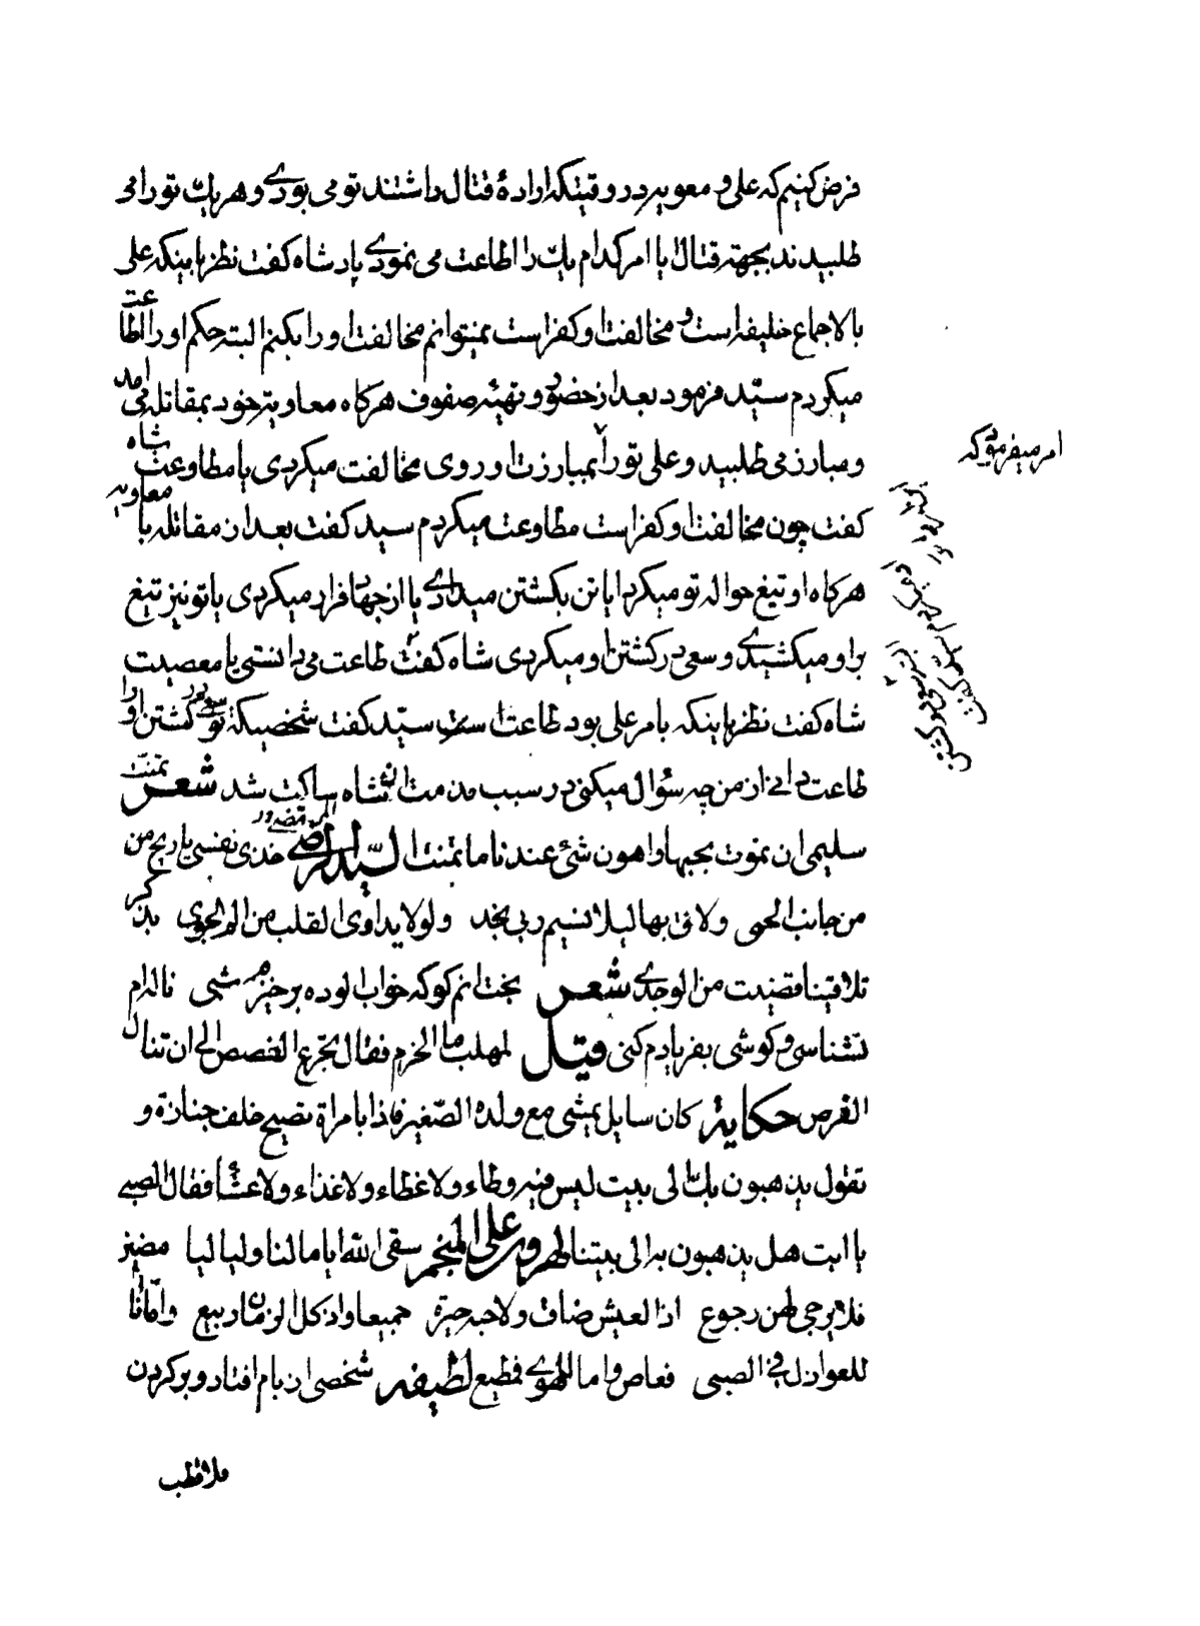 فرض کنیم که علی و معویه در وقتیکه اراده قتال داشتند تو می بودی و هر یك تو را می
طلبیدند بجهته قتال با امر کدام یك را اطاعت می نمودی پادشاه کفت نظر باینکه علی
بالاجماع خلیفه است و مخالفت او کفر است نمیتوانم مخالفت او را بکنم البته حکم او را اطاعت
میکردم سیّد فرمود بعد از حضور و تهیّه صفوف هرکاه معاویه خود بمقاتله می آمد
و مبارز می طلبید و علی تو را بمبارزت او روی مخالفت میکردی یا مطاوعت شاه
کفت چون مخالفت او کفر است مطاوعت میکردم سید کفت بعد از مقاتله با معاویه
هرکاه او تیغ حواله تو میکرد ایا تن بکشتن میدادی یا از جهاد فرار میکردی یا تو نیز تیغ
بر او میکشیدی و سعی در کشتن او میکردی شاه کفت طاعت می دانستی یا معصیت
شاه کفت نظر باینکه بامر علی بود طاعت است سیّد کفت شخصیکه تو سعی در کشتن او را
طاعت دانی از من چه سؤال میکنی در سبب مذمت ان شاه ساکت شد شعر تمنت
سلیمی ان نموت بحبها و اهون شئ عندنا ما تمنت السیّد المرتضی خذی نفسی یا ریح من
من جانب الحمی ولاقی بها لیلا نسیم ربی نجد ولولا یداوی القلب من الم الجوی بذکر
تلاقینا قضیت من الوجدی شعر بختانم کو که خواب الوده برخیزم شبی ناله ام
نشناسی و کوشی بفریادم کنی قیل لمهلب ما الحزم فقال تجرع الغصص الی ان تنال
الفرص حکایة کان سایل یمشی مع ولده الصّغیر فاذا بامراة تصیح خلف جنازة و
تقول یذهبون بك الی بیت لیس فیه وطاء ولا غطاء ولا غذاء ولا عشاء فقال الصبی
یا ابت هل یذهبون به الی بیتنا لهرون علی المنجم سقی الله ایاما لنا ولیالیا مضیز
فلا یرجی لهن رجوع اذ العیش ضاف ولاحبه جیرة جمیعا واذ کل الزمان ربیع و امّا انا
للعواذل فی الصبی فعاص و اما للهوی فطیع لطیفه شخصی از بام افتاد و بر کردن
امر میفرمود که
ملا قطب